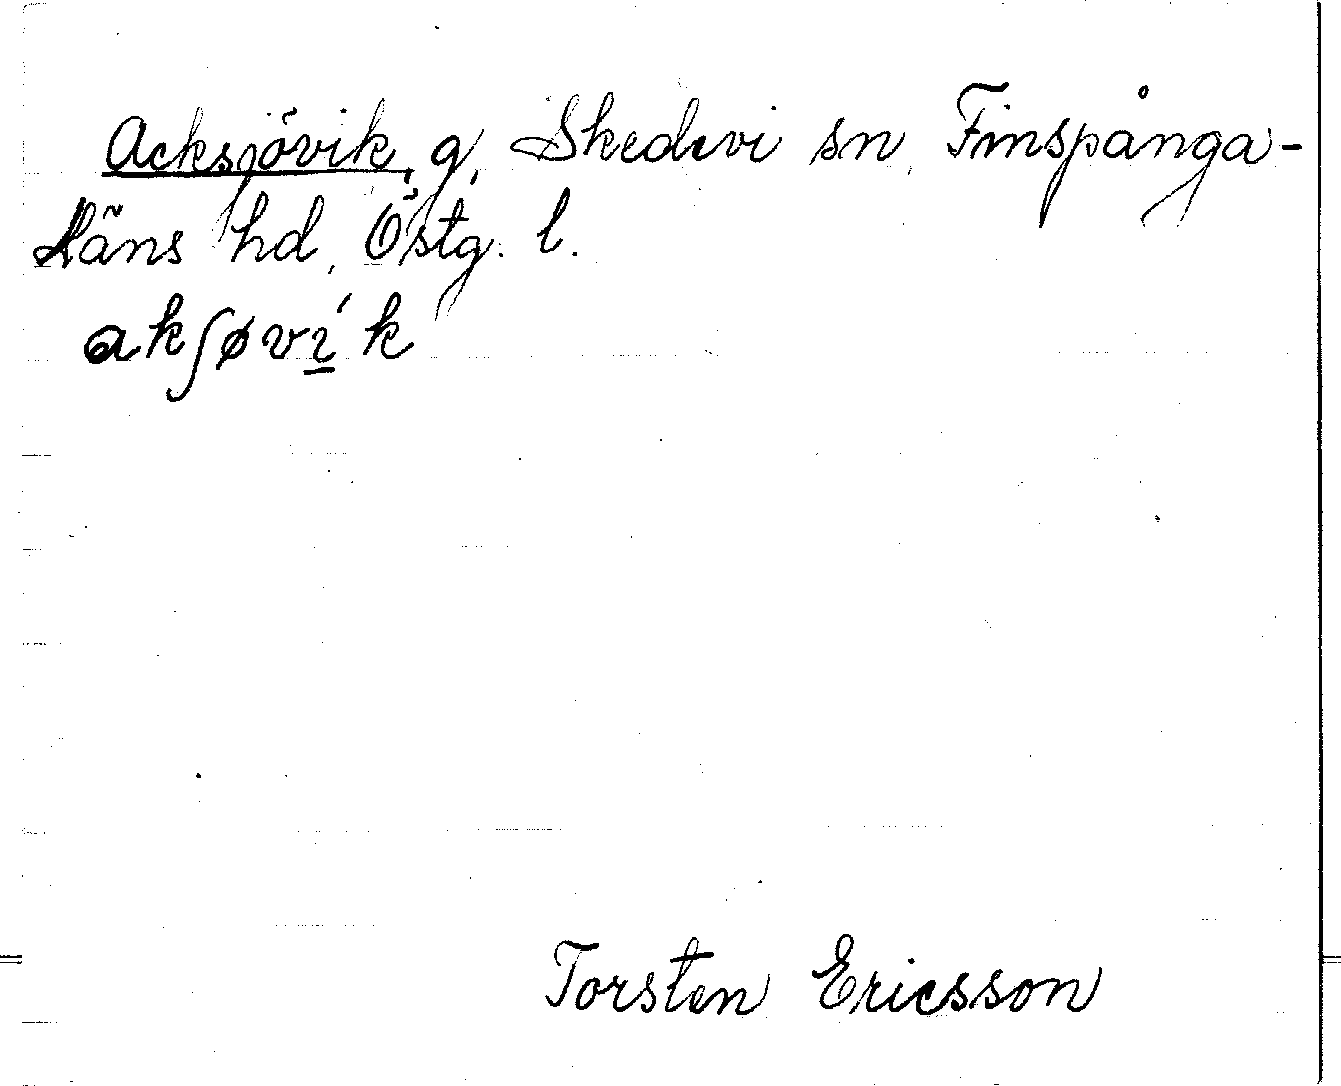 Acksjövik, g, Skedevi sn, Finspånga-
läns hd, Östg. l.
akʃøvi̱´k
Torsten Ericsson